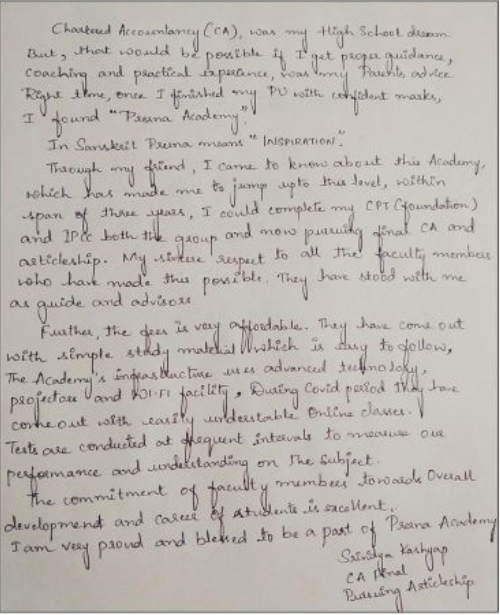 Chartered Accountancy (CA), was my High School dream
But, that would be possible if I get proper guidance,
coaching and practical experience, was my Parents advice
Right time, once I finished my PU with confident marks,
I found "Prerna Academy".
In Sanskrit Prerna means "INSPIRATION".
Through my friend, I came to know about this Academy,
which has made me to jump upto this level, within
span of three years, I could complete my CPT (foundation)
and IPCC both the group and now pursuing final CA and
articleship. My sincere respect to all the faculty members
who have made this possible. They have stood with me
as guide and advisors
Further, the fees is very affordable. They have come out
with simple study material which is easy to follow,
The Academy's infrastructure uses advanced technology,
projectors and WI-FI facility, During Covid period they have
come out with easily understable Online classes.
Tests are conducted at frequent intervals to measure our
performance and understanding on The Subject.
The commitment of faculty members towards Overall
development and career of students is excellent.
I am very proud and blessed to be a part of Prerna Academy
Srividya Kashyap
CA Final
Pursuing Articleship